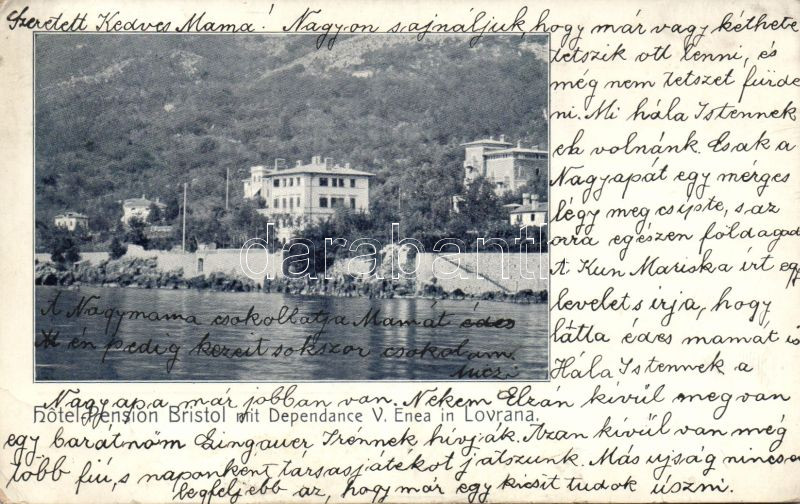 Szeretett Kedves Mama! Nagyon sajnáljuk, hogy már vagy kéthete
tetszik ott lenni, és
még nem tetszet fürde
ni. Mi hála Istennek
ek volnánk. Csak a
Nagyapát egy mérges
légy megcsipte, s az
orra egészen földagad
A Kun Mariska írt egy
levelet s írja, hogy
látta édes mamát is
Hála Istennek a
darabanth
A Nagymama csokollatja Mamát édes
én pedig kezeit sokszor csokolom.
Nagyapa már jobban van. Nekem Elzán kívül meg van
Hôtel-Pension Bristol mit Dependance V. Enea in Lovrana.
egy barátnöm Gingauer Irénnek hívják. Azan kívül van még
több fiú, s naponként társasjátékot játszunk. Más ujság nincsen
legfeljebb az, hogy már egy kicsit tudok úszni.